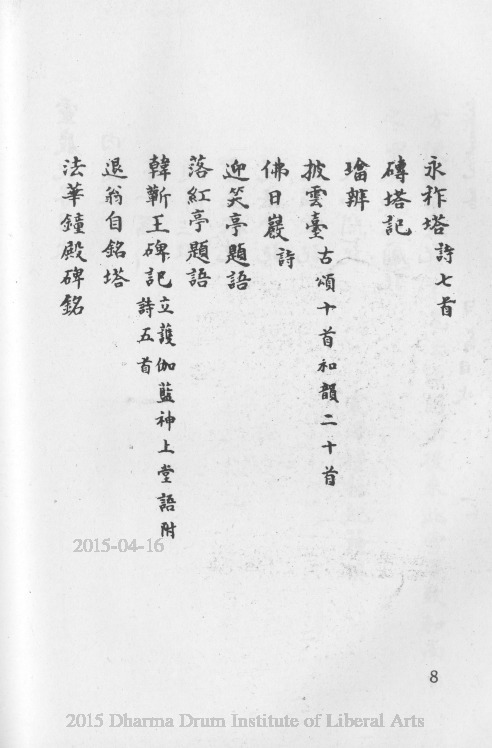 永祚塔詩七首
磚塔記
墖辨
披雲臺古頌十首和韻二十首
佛日巖詩
迎笑亭題語
落紅亭題語
韓蘄王碑記立護伽藍神上堂語附詩五首
退翁自銘塔
法華鐘殿碑銘
2015-04-16
8
2015 Dharma Drum Institute of Liberal Arts